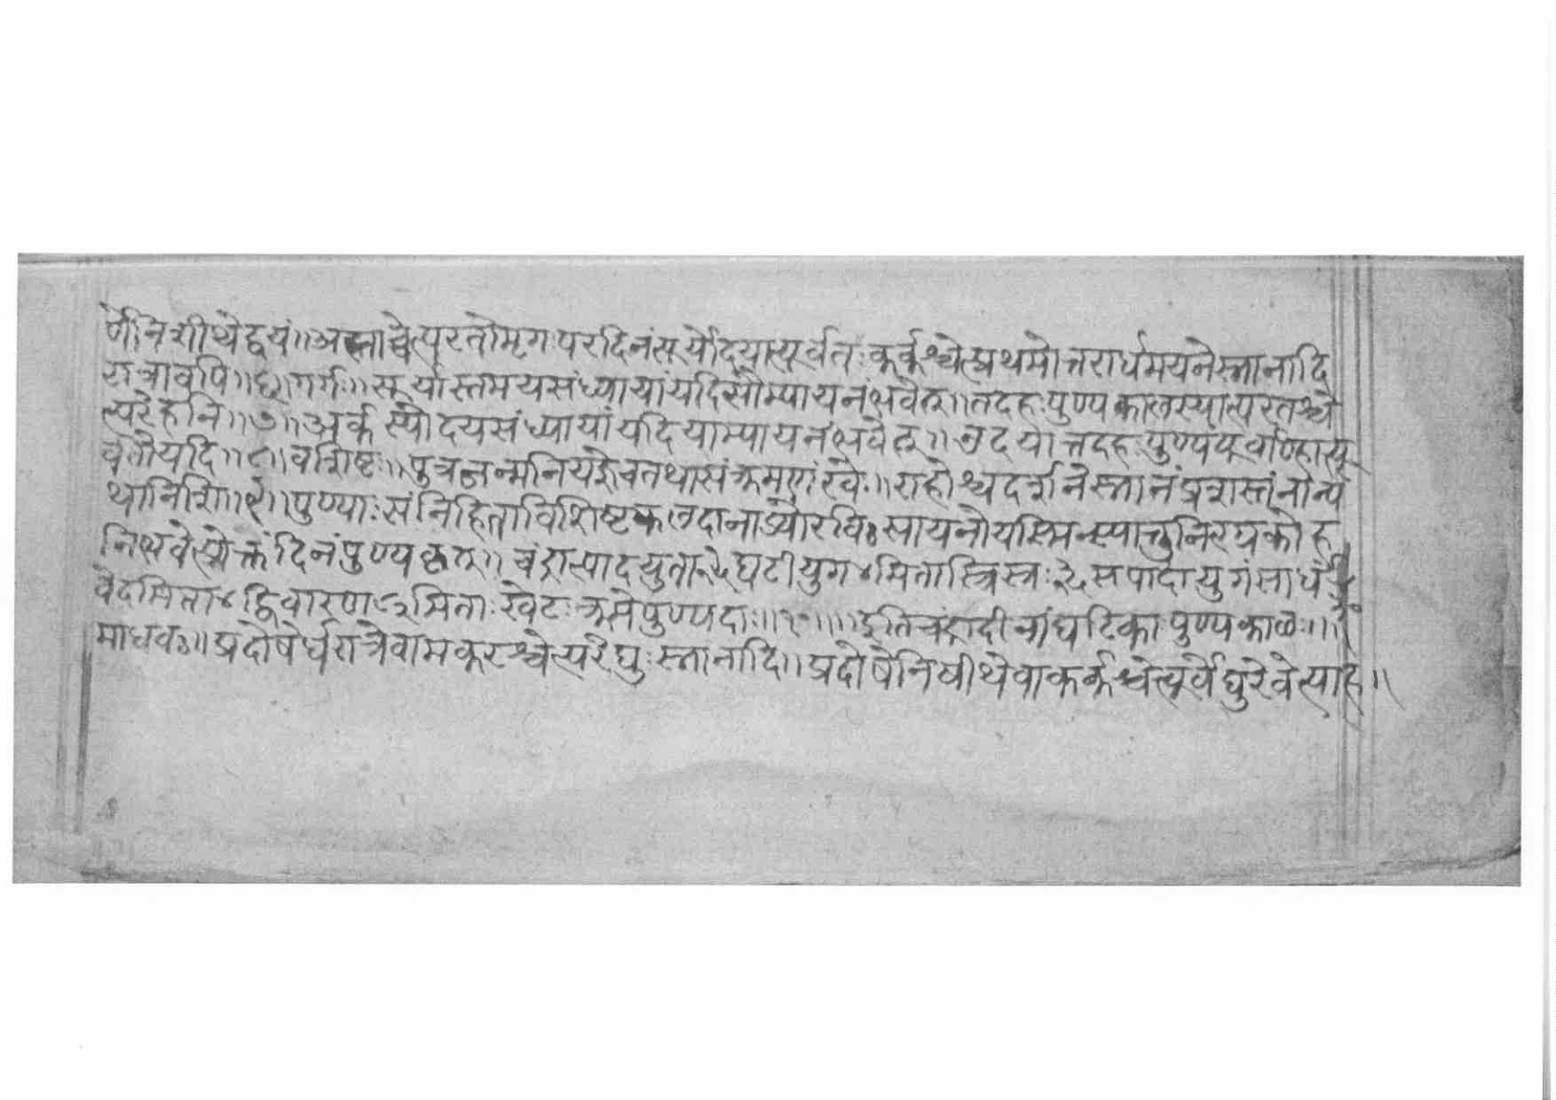 र्णेनिशीथ्येद्वयं॥अस्ताच्चेत्परतोमृगःपरदिनंसूर्योदयात्पूर्वतःकर्कश्चेत्प्रथमोत्तरार्धमयनेस्नानादि
रात्रावपि॥६॥गर्गः॥सूर्यास्तमयसंध्यायांयदिसौम्यायनंभवेत्॥तदहःपुण्यकालस्यात्परतश्चे
त्परेहनि॥७॥अर्कस्योदयसंध्यायांयदियाम्यायनंभवेत्॥उदयात्तदहःपुण्यंपूर्वाण्हात्पू
र्वतोयदि॥८॥वशिष्टः॥पुत्रजन्मनियज्ञेचतथासंक्रमणेरवेः॥राहोश्चदर्शनेस्नानंप्रशस्तंनान्य
थानिशि॥९॥पुण्याःसंनिहिताविशिष्टफलदानाड्योरविःसायनोयस्मिन्स्यात्तु
निभवेत्प्रोक्तंदिनंपुण्यकृत्॥चंद्रात्पादयुताघटीयुग४मितास्तिस्त्रःसपादायुगंसार्धं
वेदमिता४द्विवारणमिताःखेटःक्रमेपुण्यदाः॥१०॥इतिचंद्रादीनांघटिकापुण्यकाळः॥
माधवः॥प्रदोषेर्धरात्रेवामकरश्चेत्परेद्युःस्नानादि॥प्रदोषेनिषीथेवाकर्कश्चेत्पूर्वेद्युरेवेत्याह॥